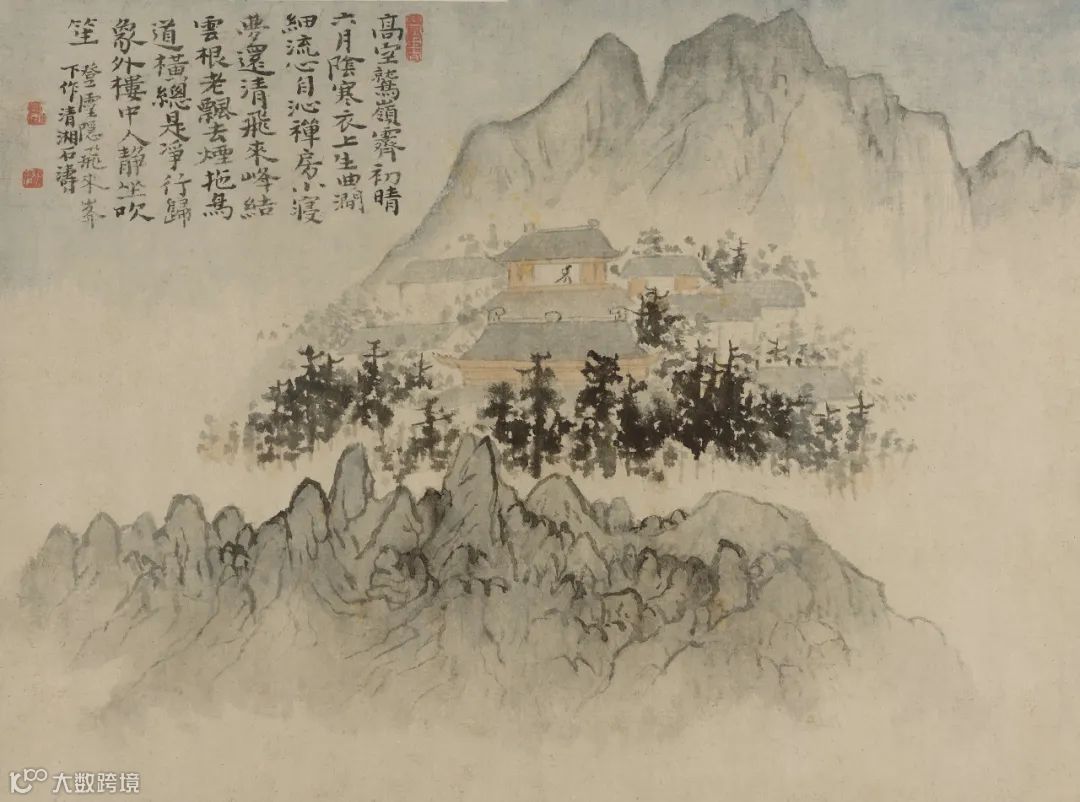 高空鷲嶺霽初晴
六月陰寒衣上生曲澗
細流心自沁禪房小寢
夢還清飛來峰結
雲根老飄去煙拖鳥
道橫總是淨行歸
象外樓中人靜坐吹
笙
登靈隱飛來峯
下作清湘石濤
大数跨境